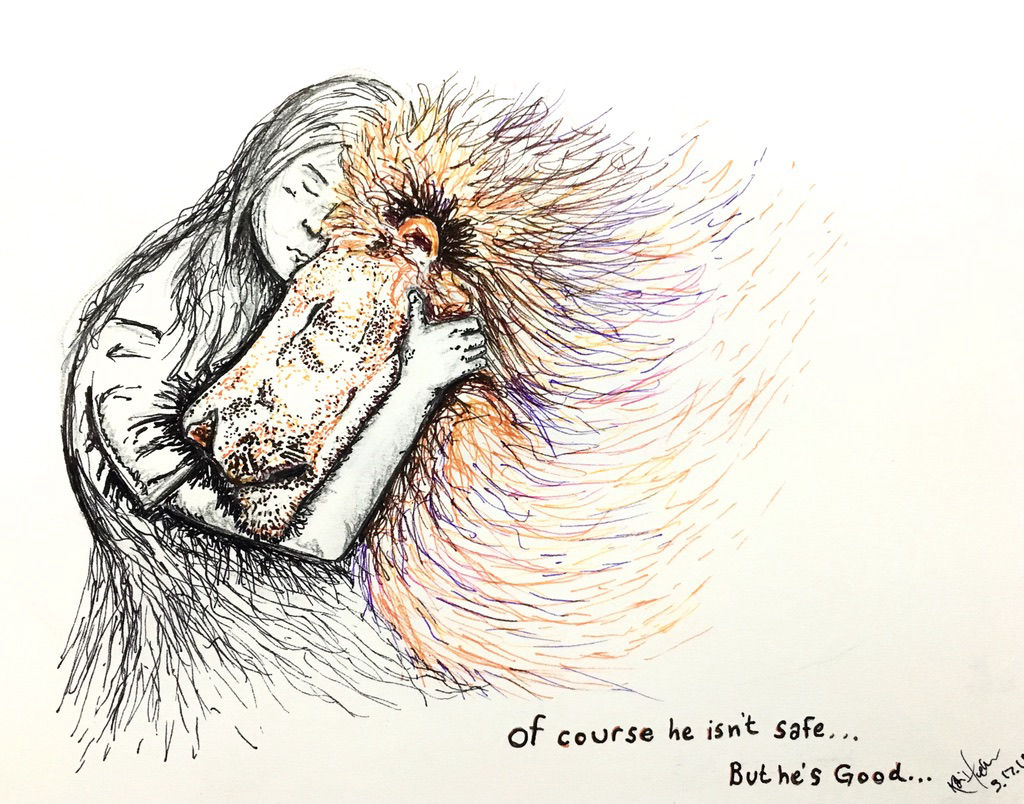 Of course he isn't safe...
But he's Good...